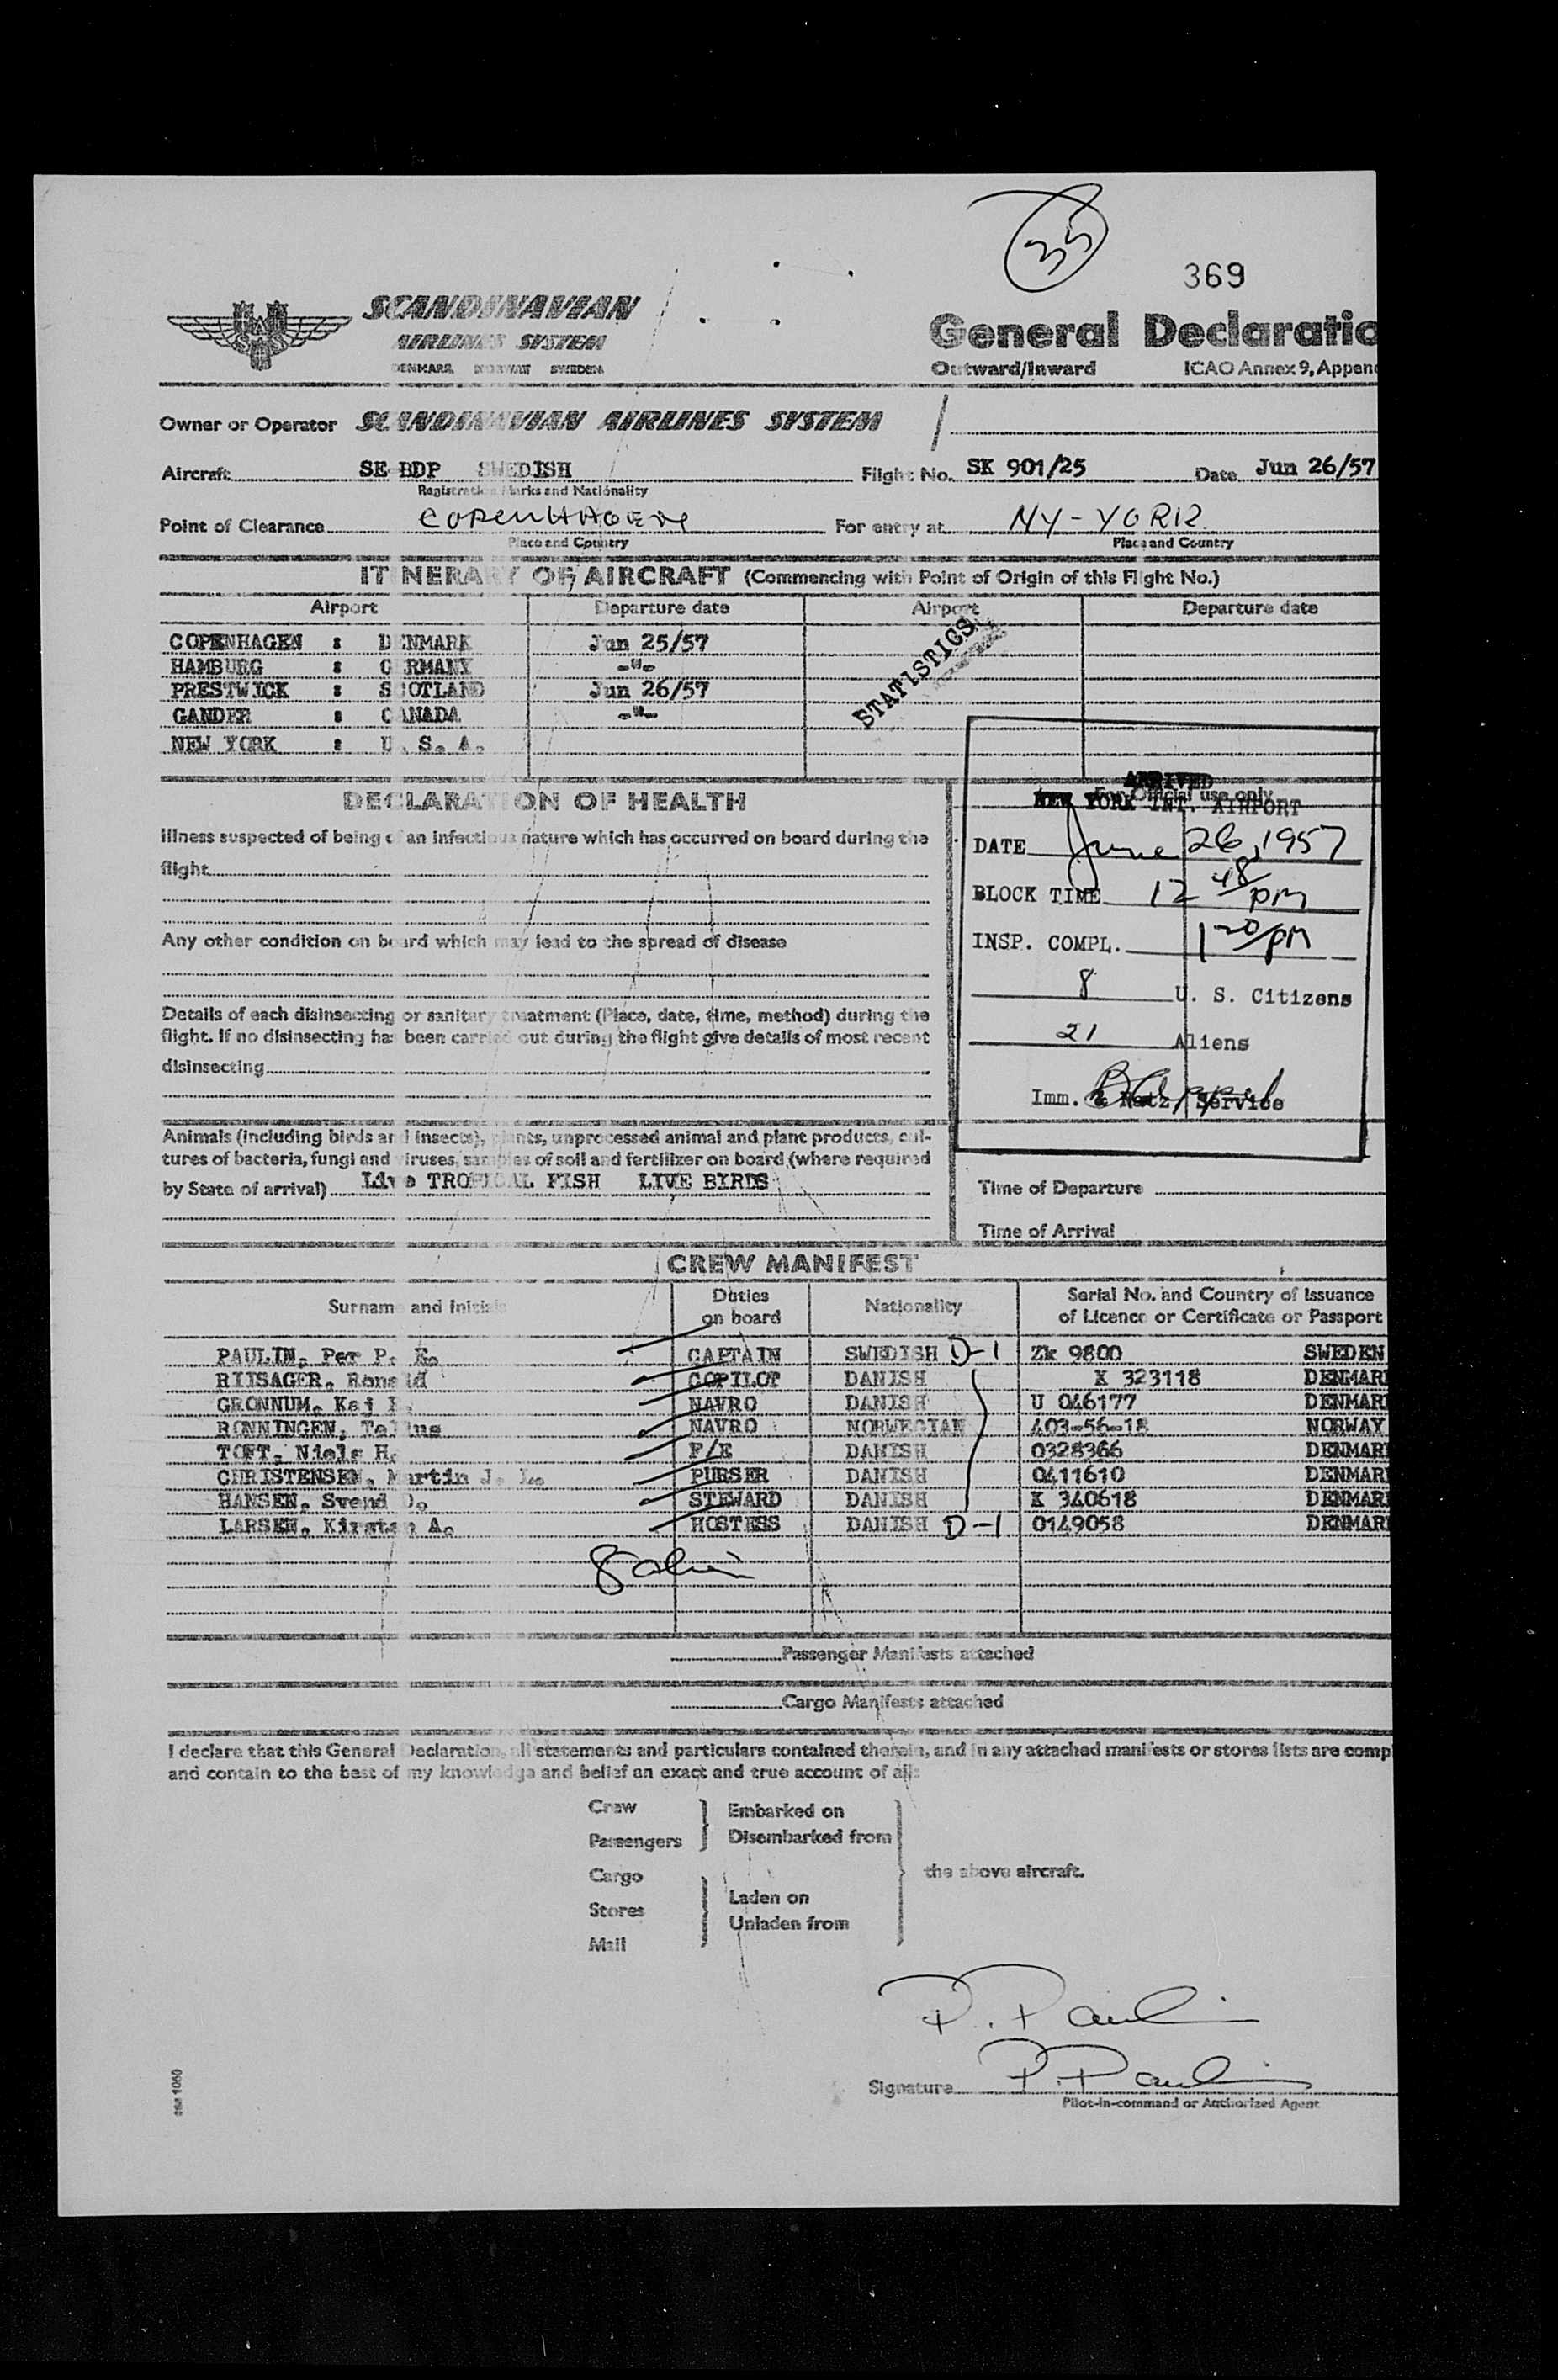 35
369
SCANDINAVIAN
AIRLINES SYSTEM
DENMARK NORWAY SWEDEN
General Declaratio
Outward/Inward ICAO Annex 9, Appen
Owner or Operator SCANDINAVIAN AIRLINES SYSTEM
Aircraft SE BDP SWEDISH Flight No. SK 901/25 Date Jun 26/57
Registration Marks and Nationality
Point of Clearance COPENHAGEN For entry at NY-YORK
Place and Country Place and Country
ITINERARY OF AIRCRAFT (Commencing with Point of Origin of this Flight No.)
Airport Departure date Airport Departure date
COPENHAGEN : DENMARK Jun 25/57
HAMBURG : GERMANY -"-
PRESTWICK : SCOTLAND Jun 26/57
GANDER : CANADA -"-
NEW YORK : U. S. A.
STATISTICS
DECLARATION OF HEALTH
Illness suspected of being of an infectious nature which has occurred on board during the
flight
Any other condition on board which may lead to the spread of disease
Details of each disinsecting or sanitary treatment (Place, date, time, method) during the
flight. If no disinsecting has been carried out during the flight give details of most recent
disinsecting
Animals (including birds and insects), plants, unprocessed animal and plant products, cul-
tures of bacteria, fungi and viruses, samples of soil and fertilizer on board (where required
by State of arrival) Live TROPICAL FISH LIVE BIRDS
For Official use only
ARRIVED
NEW YORK INT. AIRPORT
DATE June 26, 1957
BLOCK TIME 12 48/pm
INSP. COMPL. 1 20/pm
8 U. S. Citizens
21 Aliens
Imm. & Natz Service
Time of Departure
Time of Arrival
CREW MANIFEST
Surname and Initials Duties on board Nationality Serial No. and Country of Issuance of Licence or Certificate or Passport
PAULIN, Per P. E. CAPTAIN SWEDISH D-1 Zk 9800 SWEDEN
RIISAGER, Ronald COPILOT DANISH K 323118 DENMAR
GRONNUM, Kaj NAVRO DANISH U 046177 DENMAR
RONNINGEN, NAVRO NORWEGIAN 403-56-18 NORWAY
TOFT, Niels H. F/E DANISH 0328366 DENMAR
CHRISTENSEN, Martin J. L. PURSER DANISH 0411610 DENMAR
HANSEN, Svend O. STEWARD DANISH K 340618 DENMAR
LARSEN, Kirsten A. HOSTESS DANISH D-1 0149058 DENMAR
8
Passenger Manifests attached
Cargo Manifests attached
I declare that this General Declaration, all statements and particulars contained therein, and in any attached manifests or stores lists are comp
and contain to the best of my knowledge and belief an exact and true account of all:
Crew
Passengers
Embarked on
Disembarked from
Cargo
Stores
Mail
Laden on
Unladen from
the above aircraft.
P. Paulin
Signature P. Paulin
Pilot-in-command or Authorized Agent